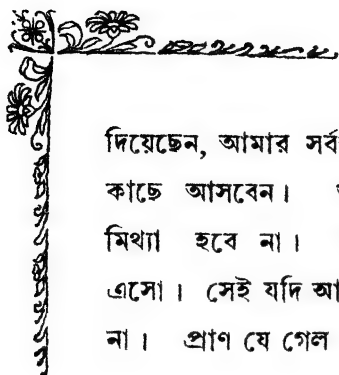 দিয়েছেন, আমার সর্ব
কাছে আসবেন।
মিথ্যা হবে না।
এসো। সেই যদি আ
না। প্রাণ যে গেল